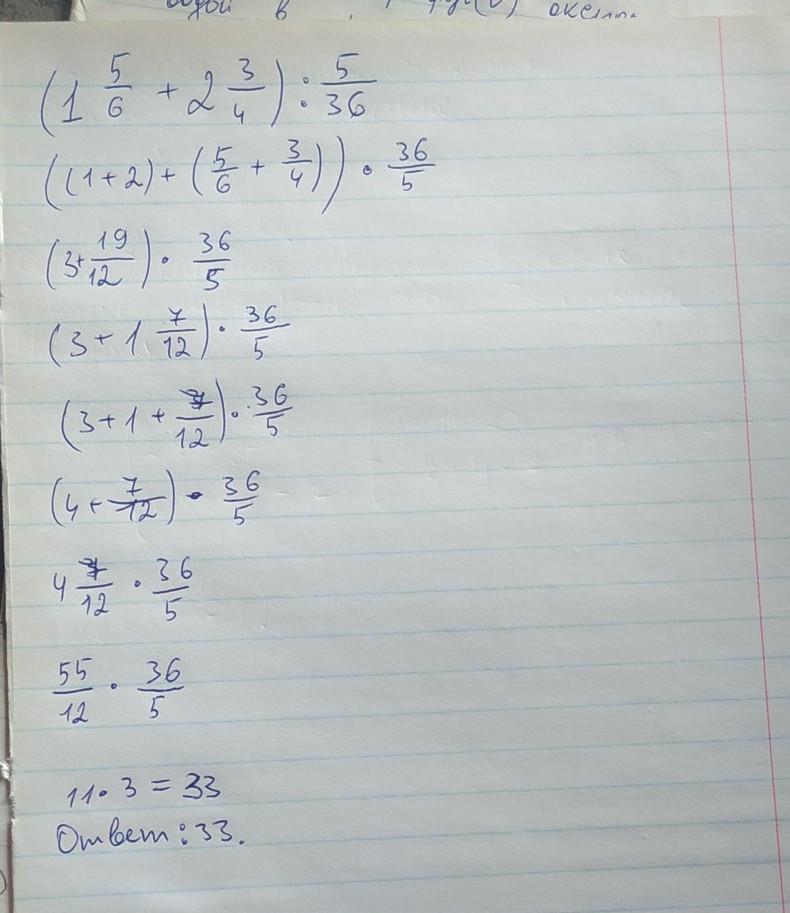 в
(1 5/6 + 2 3/4) : 5/36
((1+2) + (5/6 + 3/4)) • 36/5
(3+ 19/12) • 36/5
(3 + 1 7/12) • 36/5
(3 + 1 + 7/12) • 36/5
(4 + 7/12) • 36/5
4 7/12 • 36/5
55/12 • 36/5
11 • 3 = 33
Ответ: 33.